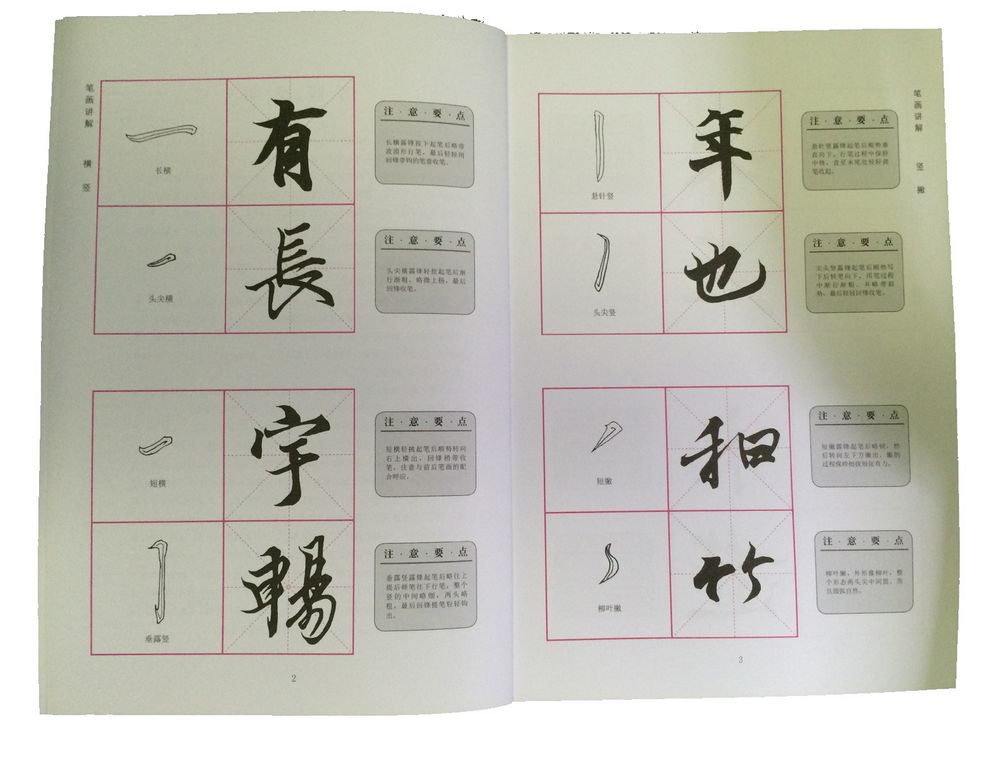 笔画讲解 横 竖
长横
有
注·意·要·点
长横露锋按下起笔后略带
波浪形行笔，最后轻轻用
回锋带钩的笔意收笔。
头尖横
長
注·意·要·点
头尖横露锋轻按起笔后渐
行渐粗，略微上扬，最后
回锋收笔。
短横
宇
注·意·要·点
短横轻挑起笔后顺势转向
右上横出，回锋稍带收
笔，注意与前后笔画的配
合呼应。
垂露竖
暢
注·意·要·点
垂露竖露锋起笔后略往上
提后顿笔往下行笔，整个
竖的中间略细，两头略
粗，最后回锋提笔轻轻钩
出。
2
笔画讲解 竖 撇
悬针竖
年
注·意·要·点
悬针竖露锋起笔后顺势垂
直向下，行笔过程中保持
中锋，直至末尾处轻轻提
笔收起。
头尖竖
也
注·意·要·点
尖头竖露锋起笔后顺势写
下后轻笔向下，用笔过程
中渐行渐粗，并略带斜
势，最后轻轻回锋收笔。
短撇
和
注·意·要·点
短撇露锋起笔后略顿，然
后转向左下方撇出，撇的
过程保持细挺短促有力。
柳叶撇
竹
注·意·要·点
柳叶撇，外形像柳叶，整
个形态两头尖中间粗，而
且圆弧自然。
3